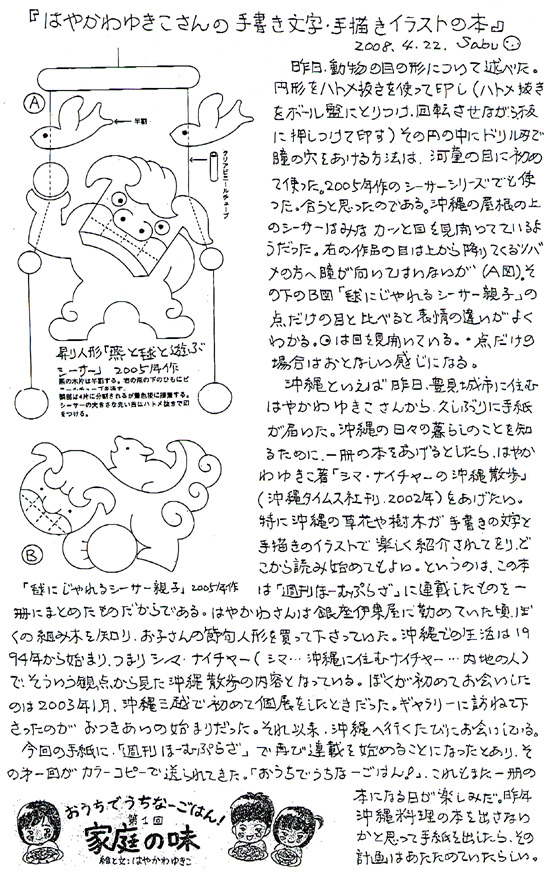 『はやかわゆきこさんの手書き文字・手描きイラストの本』
2008.4.22. Sabu
昨日、動物の目の形について述べた。
円形をハトメ抜きを使って印し(ハトメ抜き
をボール盤にとりつけ、回転させながら板
に押しつけて印す)その円の中にドリル刃で
瞳の穴をあける方法は、河童の目に初め
て使った。2005年作のシーサーシリーズでも使
った。合うと思ったのである。沖縄の屋根の上
のシーサーはみなカッと目を見開いているよ
うだった。右の作品の目は上から降りてくるツバ
メの方へ瞳が向いてはいないが(A図)、そ
の下のB図「毬にじゃれるシーサー親子」の
点だけの目と比べると表情の違いがよく
わかる。⊙は目を見開いている。・点だけの
場合はおとなしい感じになる。
沖縄といえば昨日、豊見城市に住む
はやかわゆきこさんから、久しぶりに手紙
が届いた。沖縄の日々の暮らしのことを知
るために、一冊の本をあげるとしたら、はやか
わゆきこ著「シマ・ナイチャーの沖縄散歩」
(沖縄タイムス社刊、2002年)をあげたい。
特に沖縄の草花や樹木が手書きの文字と
手描きのイラストで楽しく紹介されており、ど
こから読み始めてもよい。というのは、この本
は「週刊ほーむぷらざ」に連載したものを一
冊にまとめたものだからである。はやかわさんは銀座伊東屋に勤めていた頃、ぼ
くの組み木を知り、お子さんの節句人形を買って下さっていた。沖縄での生活は19
94年から始まり、つまりシマ・ナイチャー(シマ…沖縄に住むナイチャー…内地の人)
で、そういう観点から見た沖縄散歩の内容となっている。ぼくが初めてお会いした
のは2003年1月、沖縄三越で初めて個展をしたときだった。ギャラリーに訪ねて下
さったのがおつきあいの始まりだった。それ以来、沖縄へ行くたびにお会いしている。
今回の手紙に、「週刊ほーむぷらざ」で再び連載を始めることになったとあり、そ
の第一回がカラーコピーで送られてきた。「おうちでうちなーごはん!」、これもまた一冊の
本になる日が楽しみだ。昨年
沖縄料理の本を出さない
かと思って手紙を出したら、その
計画はあたためていたらしい。
A
半割
クリアビニールチューブ
昇り人形「燕と毬と遊ぶ
シーサー」 2005年作
燕の木片は半割する。右の燕の下のひもにビ
ニールチューブを通す。
胴部は4片に分割されるが着色後に接着する。
シーサーの大きさな丸い目はハトメ抜きで印
をつける。
B
「毬にじゃれるシーサー親子」2005年作
おうちでうちなーごはん!
第1回
家庭の味
絵と文:はやかわゆきこ